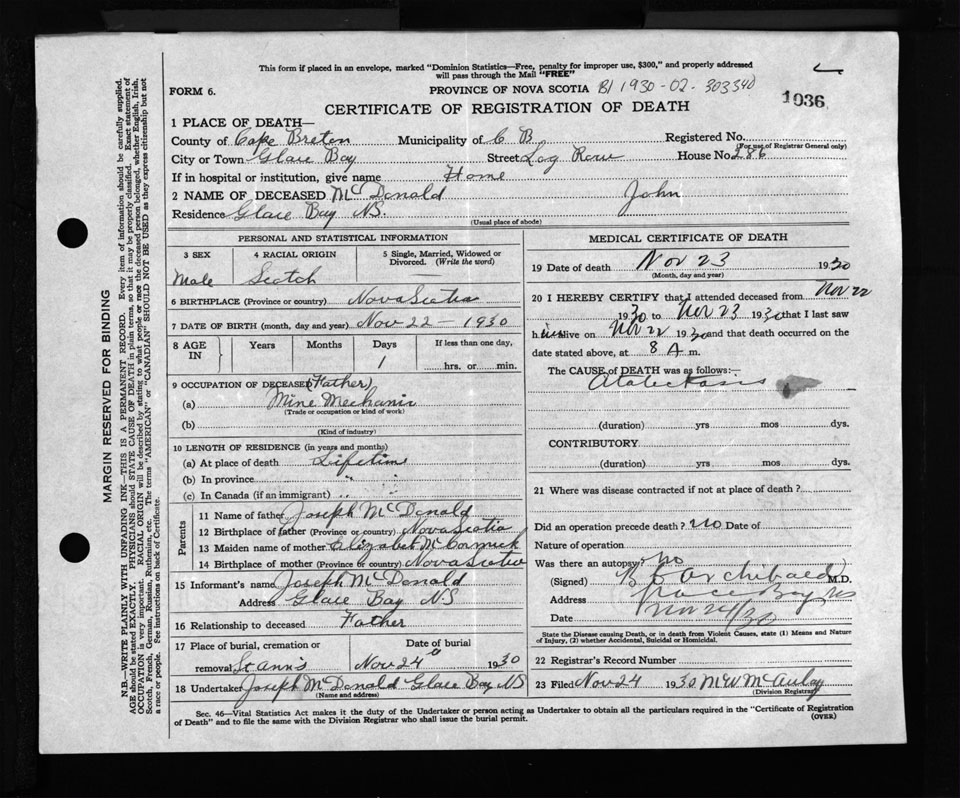 This form if placed in an envelope, marked "Dominion Statistics—Free, penalty for improper use, $300," and properly addressed
will pass through the Mail "FREE"
FORM 6.
PROVINCE OF NOVA SCOTIA B1 1930-02-303340
1036
CERTIFICATE OF REGISTRATION OF DEATH
1 PLACE OF DEATH—
County of Cape Breton Municipality of C B Registered No.
(For use of Registrar General only)
City or Town Glace Bay Street Log Row House No. 286
If in hospital or institution, give name Home
2 NAME OF DECEASED McDonald John
Residence Glace Bay NS.
(Usual place of abode)
PERSONAL AND STATISTICAL INFORMATION
3 SEX 4 RACIAL ORIGIN 5 Single, Married, Widowed or Divorced. (Write the word)
Male Scotch
6 BIRTHPLACE (Province or country) Nova Scotia
7 DATE OF BIRTH (month, day and year) Nov 22 - 1930
8 AGE IN Years Months Days If less than one day,
1 hrs. or min.
9 OCCUPATION OF DECEASED (Father)
(a) Mine Mechanic
(Trade or occupation or kind of work)
(b)
(Kind of industry)
10 LENGTH OF RESIDENCE (in years and months)
(a) At place of death Lifetime
(b) In province "
(c) In Canada (if an immigrant) "
Parents
11 Name of father Joseph McDonald
12 Birthplace of father (Province or country) Nova Scotia
13 Maiden name of mother Elizabet McCormick
14 Birthplace of mother (Province or country) Nova Scotia
15 Informant's name Joseph McDonald
Address Glace Bay NS
16 Relationship to deceased Father
17 Place of burial, cremation or Date of burial
removal St Ann's Nov 24 1930
18 Undertaker Joseph McDonald Glace Bay NS
(Name and address)
MEDICAL CERTIFICATE OF DEATH
19 Date of death Nov 23 1930
(Month, day and year)
20 I HEREBY CERTIFY that I attended deceased from Nov 22
1930 to Nov 23 1930 that I last saw
h im alive on Nov 22 1930 and that death occurred on
date stated above, at 8 A m.
The CAUSE of DEATH was as follows:—
Atalectasis
(duration) yrs mos dys.
CONTRIBUTORY
(duration) yrs. mos. dys.
21 Where was disease contracted if not at place of death?
Did an operation precede death? no Date of
Nature of operation
Was there an autopsy? no
(Signed) Archibald M.D.
Address Glace Bay NS
Date Nov 24/30
State the Disease causing Death, or in death from Violent Causes, state (1) Means and Nature
of Injury, (2) whether Accidental, Suicidal or Homicidal.
22 Registrar's Record Number
23 Filed Nov 24 1930 M W McAulay
(Division Registrar)
Sec. 46—Vital Statistics Act makes it the duty of the Undertaker or person acting as Undertaker to obtain all the particulars required in the "Certificate of Registration
of Death" and to file the same with the Division Registrar who shall issue the burial permit.
(OVER)
MARGIN RESERVED FOR BINDING
N.B.—WRITE PLAINLY WITH UNFADING INK—THIS IS A PERMANENT RECORD. Every item of information should be carefully supplied.
AGE should be stated EXACTLY. PHYSICIANS should STATE CAUSE OF DEATH in plain terms, so that it may be properly classified. Exact statement of
OCCUPATION is very important. RACIAL ORIGIN will be described by stating to what people or race the deceased person belonged, whether English, Irish,
Scotch, French, German, Russian, Ruthenian, etc. The terms "AMERICAN" or "CANADIAN" SHOULD NOT BE USED as they express citizenship but not
a race or people. See instructions on back of Certificate.